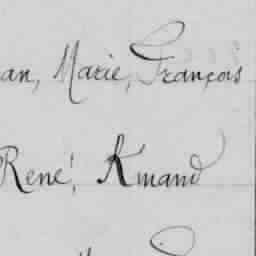 an, Marie, François
René, Kmand